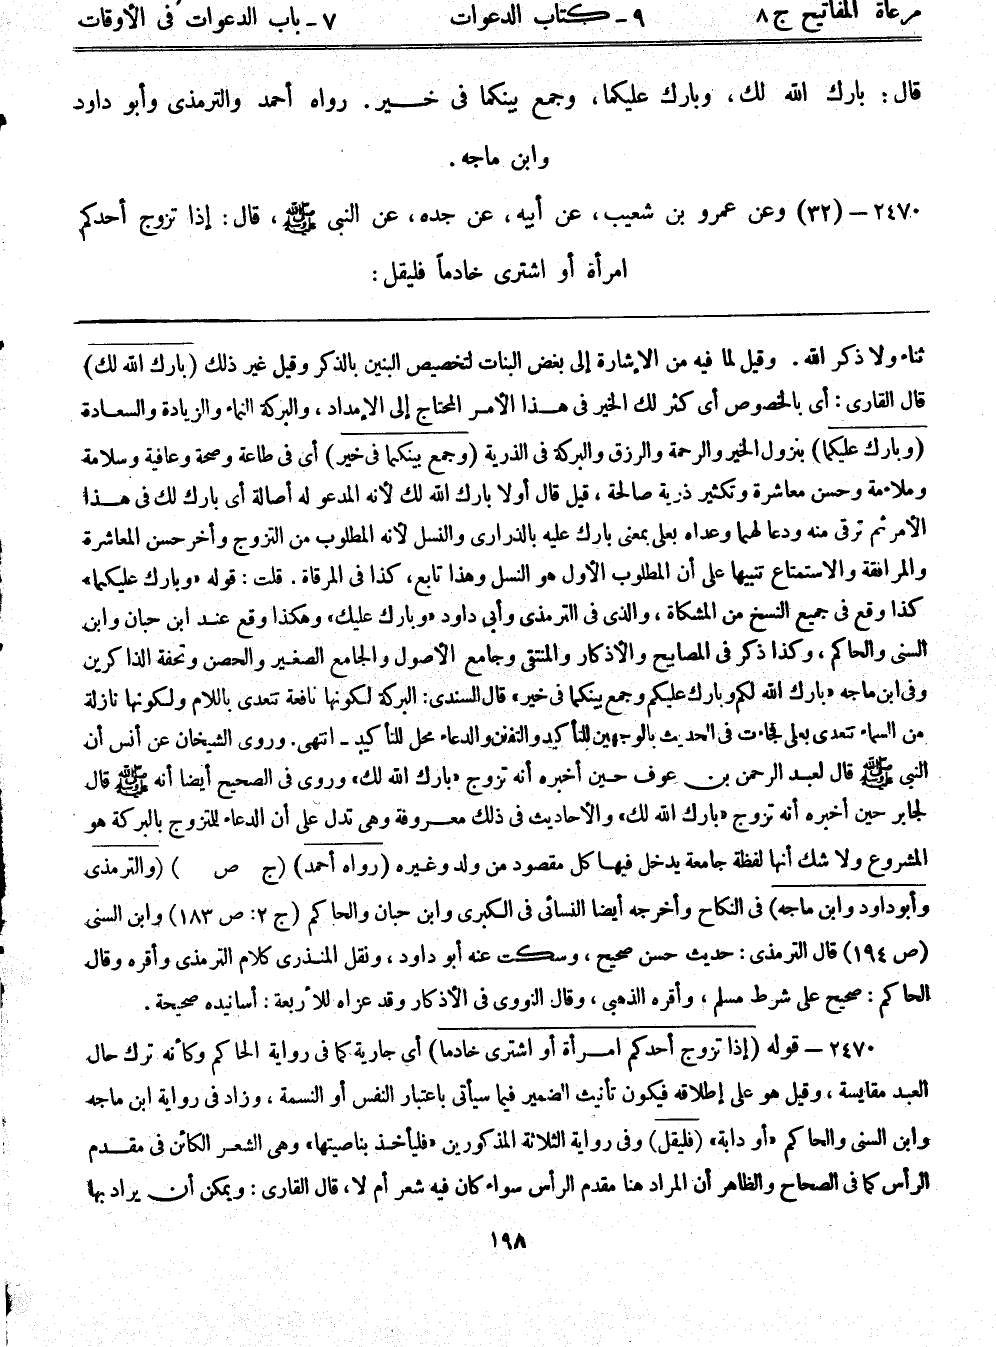 مرعاة المفاتيح ج ٨ ٩ ـ كتاب الدعوات ٧ ـ باب الدعوات فى الأوقات
قال: بارك الله لك، وبارك عليكما، وجمع بينكما فى خـــير. رواه أحمد والترمذى وأبو داود
وابن ماجه.
٢٤٧٠ – (٣٢) وعن عمرو بن شعيب، عن أبيه، عن جده، عن النبى ﷺ، قال: إذا تزوج أحدكم
امرأة أو اشترى خادماً فليقل:
ثناء ولا ذكر الله. وقيل لما فيه من الإشارة إلى بغض البنات لتخصيص البنين بالذكر وقيل غير ذلك (بارك الله لك)
قال القارى: أى بالخصوص أى كثر لك الخير فى هـذا الأمر المحتاج إلى الإمداد، والبركة النماء والزيادة والسعادة
(وبارك عليكما) بنزول الخير والرحمة والرزق والبركة فى الذرية (وجمع بينكما فى خير) أى فى طاعة وصحة وعافية وسلامة
وملاءمة وحسن معاشرة وتكثير ذرية صالحة، قيل قال أولا بارك الله لك لأنه المدعو له أصالة أى بارك لك فى هـذا
الأمر ثم ترقى منه ودعا لهما وعداه بعلى بمعنى بارك عليه بالذرارى والنسل لأنه المطلوب من التزوج وأخر حسن المعاشرة
والمرافقة والاستمتاع تنبيها على أن المطلوب الأول هو النسل وهذا تابع، كذا فى المرقاة. قلت: قوله «وبارك عليكما»
كذا وقع فى جميع النسخ من المشكاة، والذى فى الترمذى وأبى داود «وبارك عليك» وهكذا وقع عنـد ابن حبان وابن
السنى والحاكم، وكذا ذكر فى المصابيح والأذكار والمنتقى وجامع الأصول والجامع الصغير والحصن وتحفة الذاكرين
وفى ابن ماجه «بارك الله لكم وبارك عليكم وجمع بينكما فى خير» قال السندى: البركة لكونها نافعة تتعدى باللام ولكونها نازلة
من السماء تتعدى بعلى فجاءت فى الحديث بالوجهين للتأكيد والتفنن والدعاء محل للتأكيد ـ انتهى. وروى الشيخان عن أنس أن
النبى ﷺ قال لعبد الرحمن بن عوف حـين أخبره أنه تزوج «بارك الله لك» وروى فى الصحيح أيضا أنه ﷺ قال
لجابر حين أخبره أنه تزوج «بارك الله لك» والأحاديث فى ذلك معـروفة وهى تدل على أن الدعاء للتزوج بالبركة هو
المشروع ولا شك أنها لفظة جامعة يدخل فيهـا كل مقصود من ولد وغـيره (رواه أحمد) (ج ص ) (والترمذى
وأبو داود وابن ماجه) فى النكاح وأخرجه أيضا النسائى فى الكبرى وابن حبان والحاكم (ج ٢: ص ١٨٣) وابن السنى
(ص ١٩٤) قال الترمذى: حديث حسن صحيح، وسكت عنه أبو داود، ونقل المنـذرى كلام الترمذى وأقره وقال
الحاكم: صحيح على شرط مسلم، وأقره الذهبى، وقال النووى فى الأذكار وقد عزاه للأربعة: أسانيده صحيحة.
٢٤٧٠ – قوله (إذا تزوج أحدكم امـرأة أو اشترى خادما) أى جارية كما فى رواية الحاكم وكأنه ترك حال
العبد مقايسة، وقيل هو على إطلاقه فيكون تأنيث الضمير فيما سيأتى باعتبار النفس أو النسمة، وزاد فى رواية ابن ماجه
وابن السنى والحاكم «أو دابة» (فليقل) وفى رواية الثلاثة المذكورين «فليأخـذ بناصيتها» وهى الشعـر الكائن فى مقـدم
الرأس كما فى الصحاح والظاهر أن المراد هنا مقدم الرأس سواء كان فيه شعر أم لا، قال القارى: ويمكن أن يراد بها
١٩٨